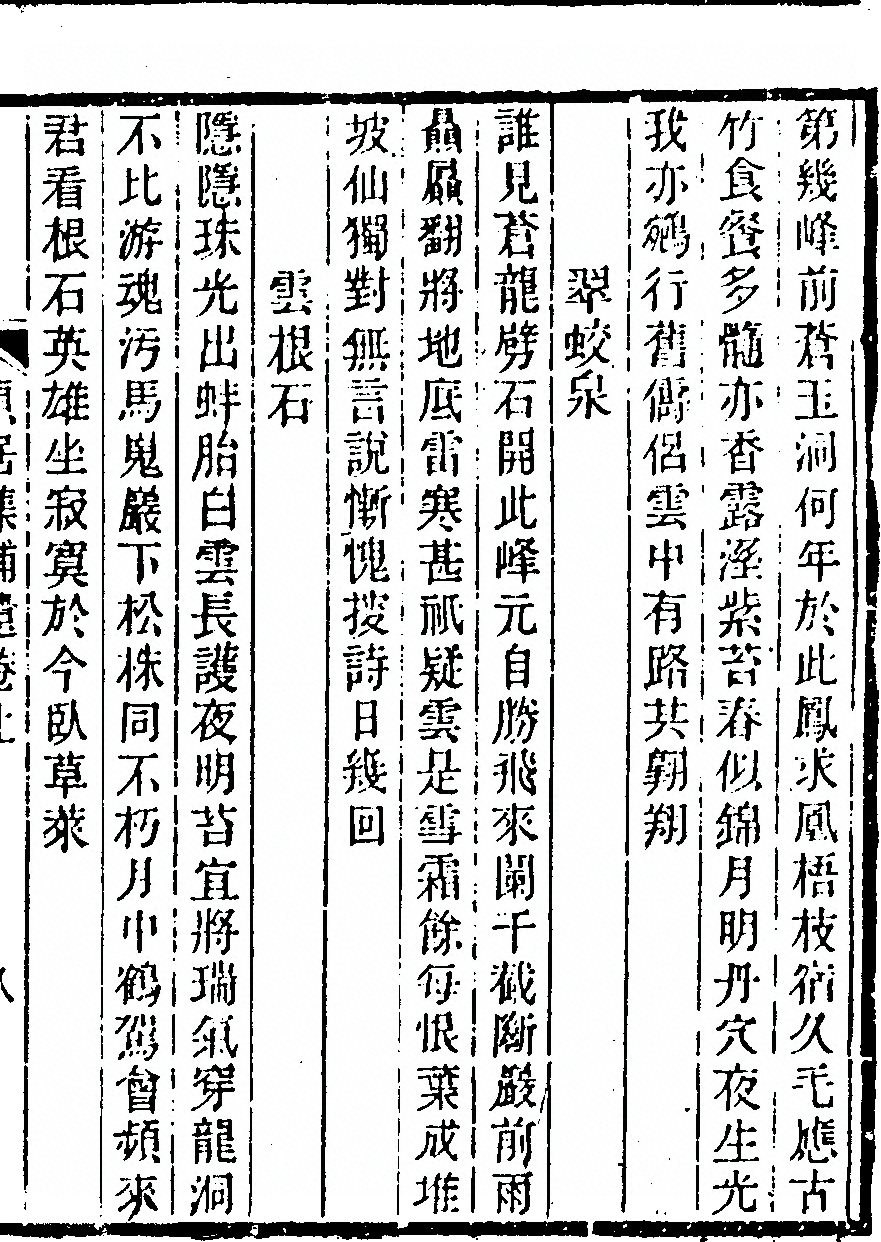 第幾峰前蒼玉洞何年於此鳳求凰梧枝宿久毛應古
竹食餐多髓亦香露溼紫苔春似錦月明丹穴夜生光
我亦鵷行舊儔侶雲中有路共翺翔
翠蛟泉
誰見蒼龍劈石開此峰元自勝飛來闌干截斷嚴前雨
贔屭翻將地底雷寒甚祇疑雲是雪霜餘每恨葉成堆
坡仙獨對無言說慚愧搜詩日幾回
雲根石
隱隱珠光出蚌胎白雲長護夜明苔宜將瑞氣穿龍洞
不比游魂污馬嵬巖下松株同不朽月中鶴駕會頻來
君看根石英雄坐寂寞於今臥草萊